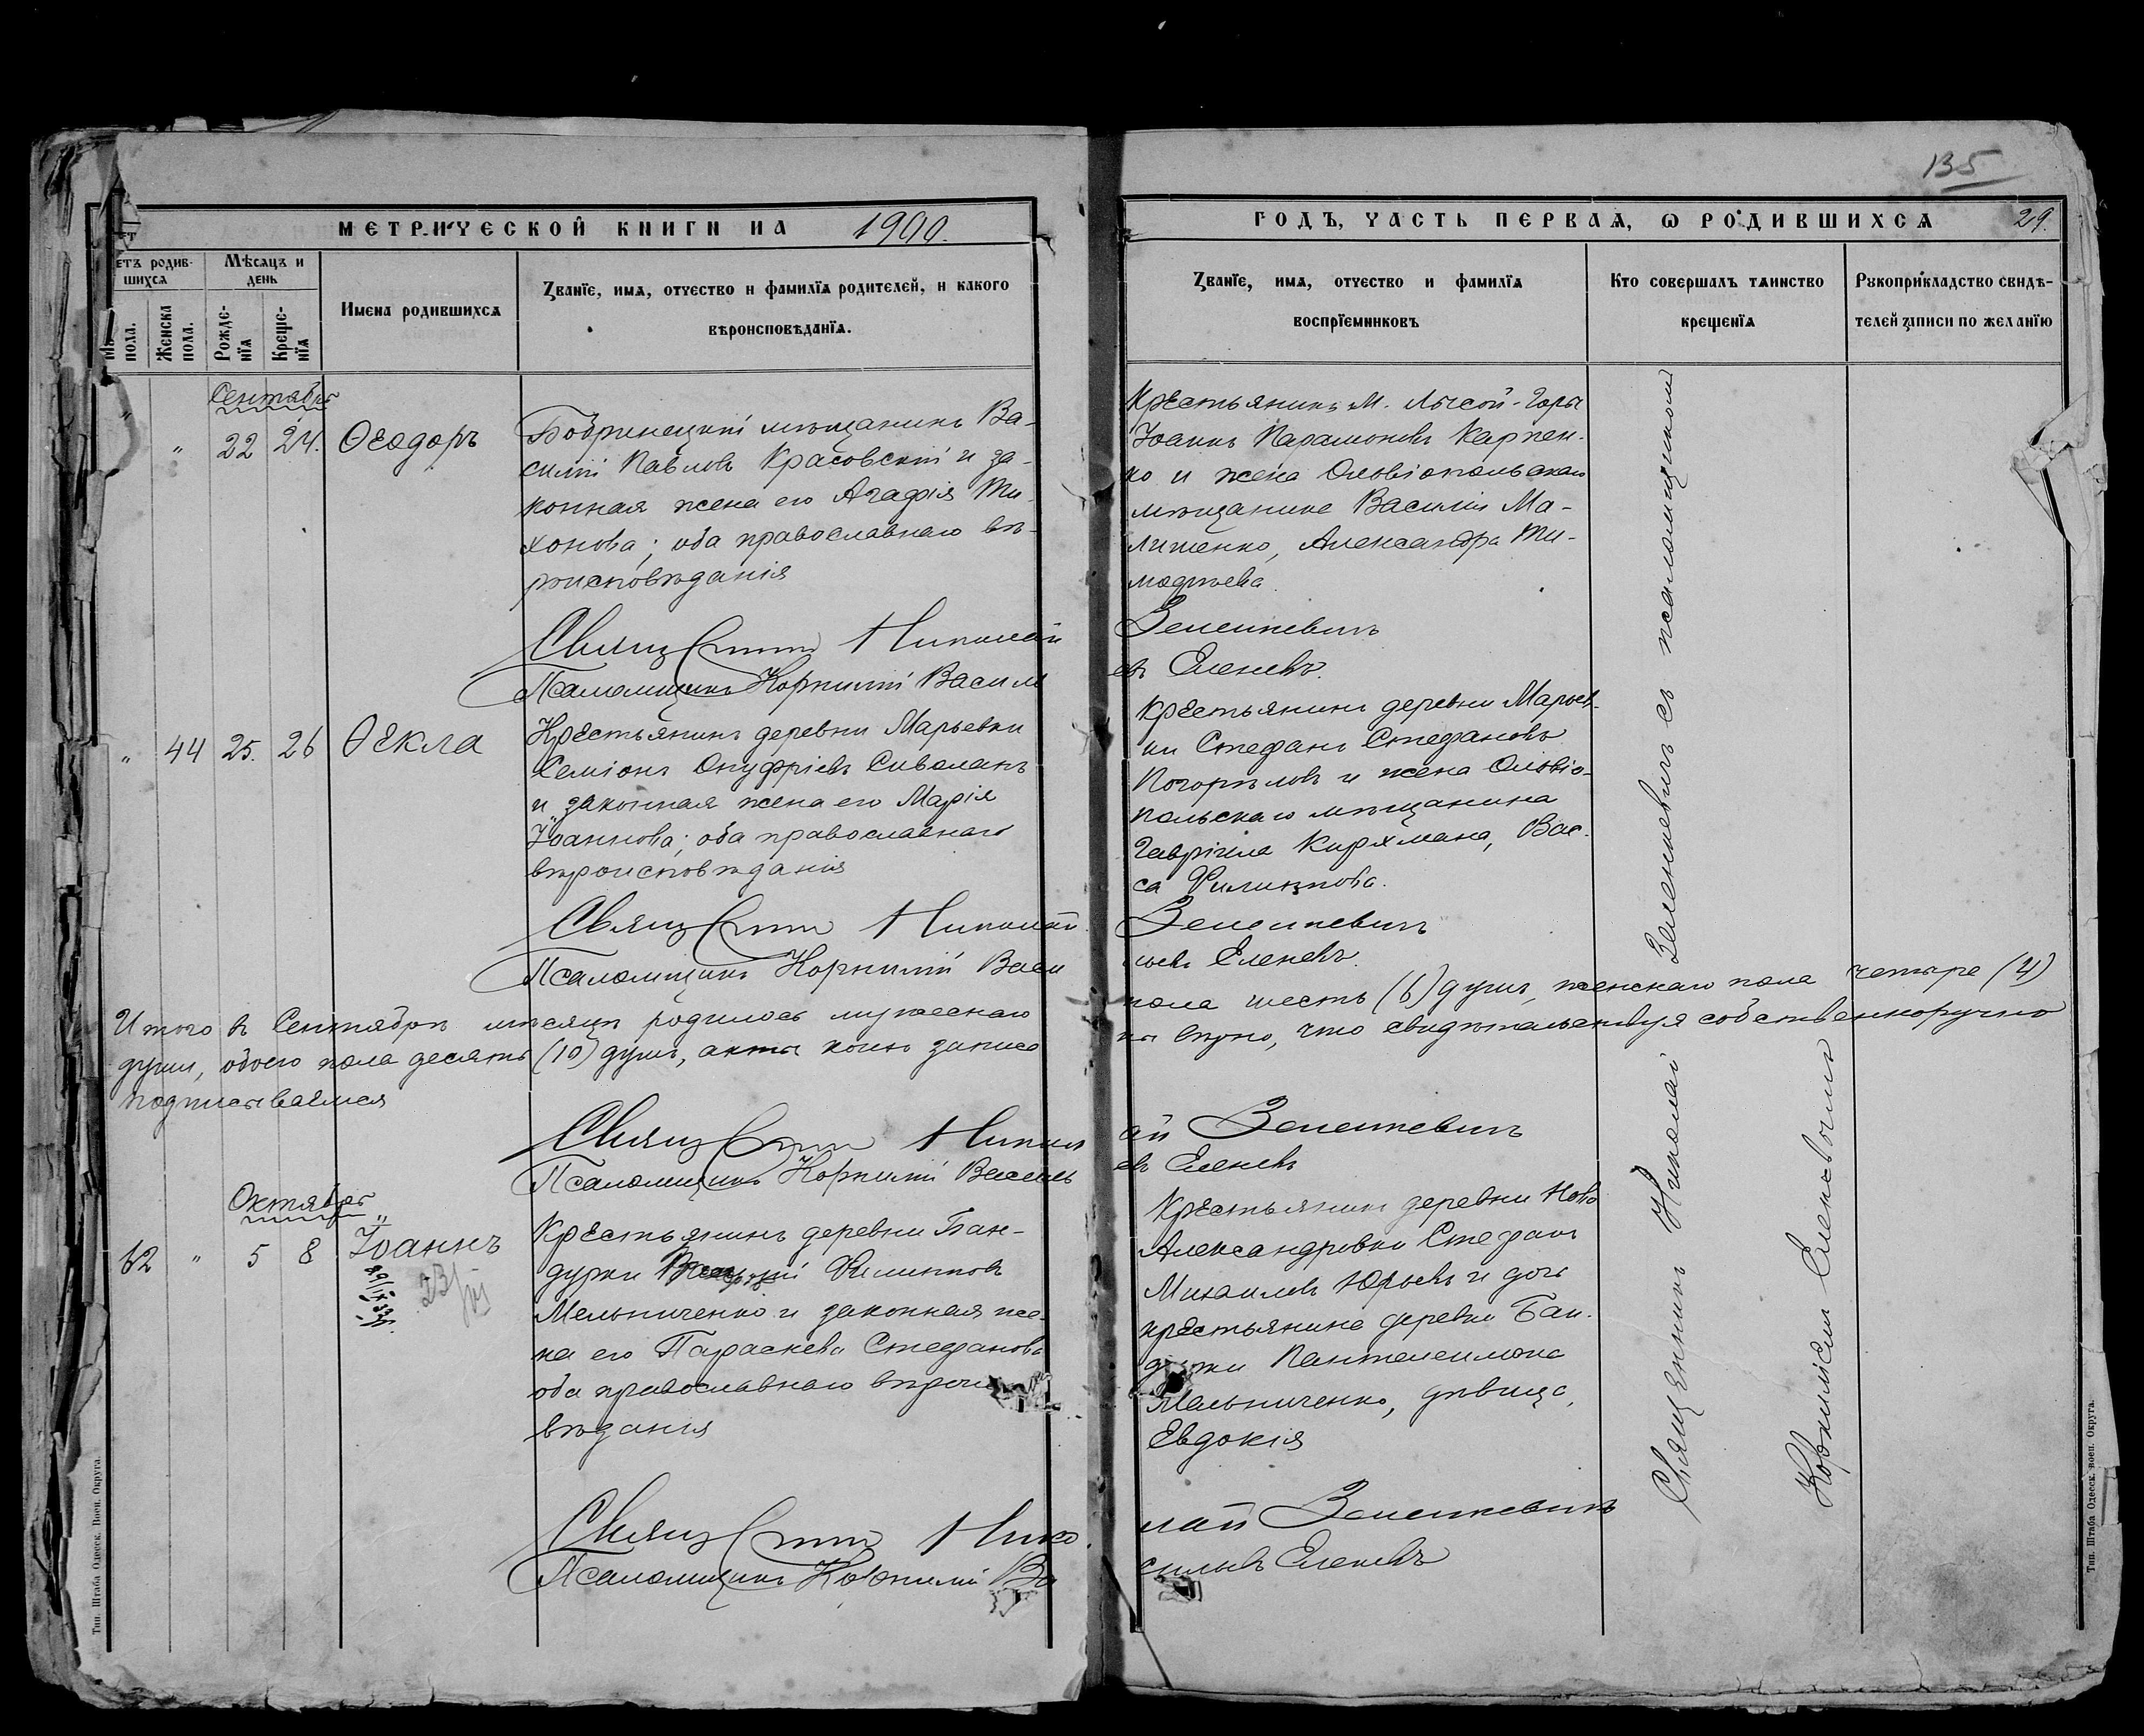 135
МЕТРИЧЕСКОЙ КНИГИ НА 1900.
ГОДЪ, ЧАСТЬ ПЕРВАЯ, Ѡ РОДИВШИХСЯ 29.
етъ родив-
шихся
Мѣсяцъ и
день
Имена родившихся
Званїе, имя, отчество и фамилїя родителей, и какого
вѣроисповѣданїя.
пола.
Женска
пола.
Рожде-
нїя
Креще-
нїя
Званїе, имя, отчество и фамилїя
воспрїемниковъ
Кто совершалъ таинство
крещенїя
Рукоприкладство свидѣ-
телей записи по желанїю
Сентябрь
" 22 24. Ѳеодоръ
Бобринецкій мѣщанинъ Ва-
силій Павловъ Красовскій и за-
конная жена его Агафія Ти-
хонова; оба православнаго вѣ-
роисповѣданія
Крестьянинъ м. Лысой-Горы
Іоаннъ Парамоновъ Карпен-
ко и жена Ольвіопольскаго
мѣщанина Василія Ма-
Александра Ти-
моѳеева.
Николай
Зелинкевичъ
Псаломщикъ Корнилій Василь
евъ Еленевъ.
" 44 25. 26 Ѳекла
Крестьянинъ деревни Марьевки
Семіонъ Онуфріевъ
и законная жена его Марія
Іоаннова; оба православнаго
вѣроисповѣданія
Крестьянинъ деревни Марьев-
ки Стефанъ Стефановъ
Погорѣловъ и жена Ольвіо-
польскаго мѣщанина
Гавріила Кирхмана, Вас-
са Филиппова.
Николай
Зелинкевичъ
Псаломщикъ Корнилій Васи
льевъ Еленевъ.
Итого въ Сентябрѣ мѣсяцѣ родилось мужескаго
пола шесть (6) душъ, женскаго пола четыре (4)
души, обоего пола десять (10) душъ, акты коихъ записа
ны вѣрно, что свидѣтельствуя собственноручно
подписываемся
Никол
ай Зелинкевичъ
Псаломщикъ Корнилій Василь
евъ Еленевъ
Октябрь
62 " 5 8 Іоаннъ
Крестьянинъ деревни Бан-
дурки Филипповъ
Мельниченко и законная же-
на его Параскева Стефанова
оба православнаго вѣроис
вѣданія
Крестьянинъ деревни Ново
Александровки Стефанъ
Михаиловъ Юрьевъ и дочь
крестьянина деревни Бан-
Пантелеимона
Мельниченко, дѣвица,
Евдокія
Нико
лай Зелинкевичъ
Псаломщикъ Корнилій Ва
сильевъ Еленевъ
Священникъ Николай Зелинкевичъ съ псаломщикомъ
Корниліемъ Еленевымъ
Тип. Штаба Одесск. Воен. Округа.
Тип. Штаба Одесск. воен. Округа.